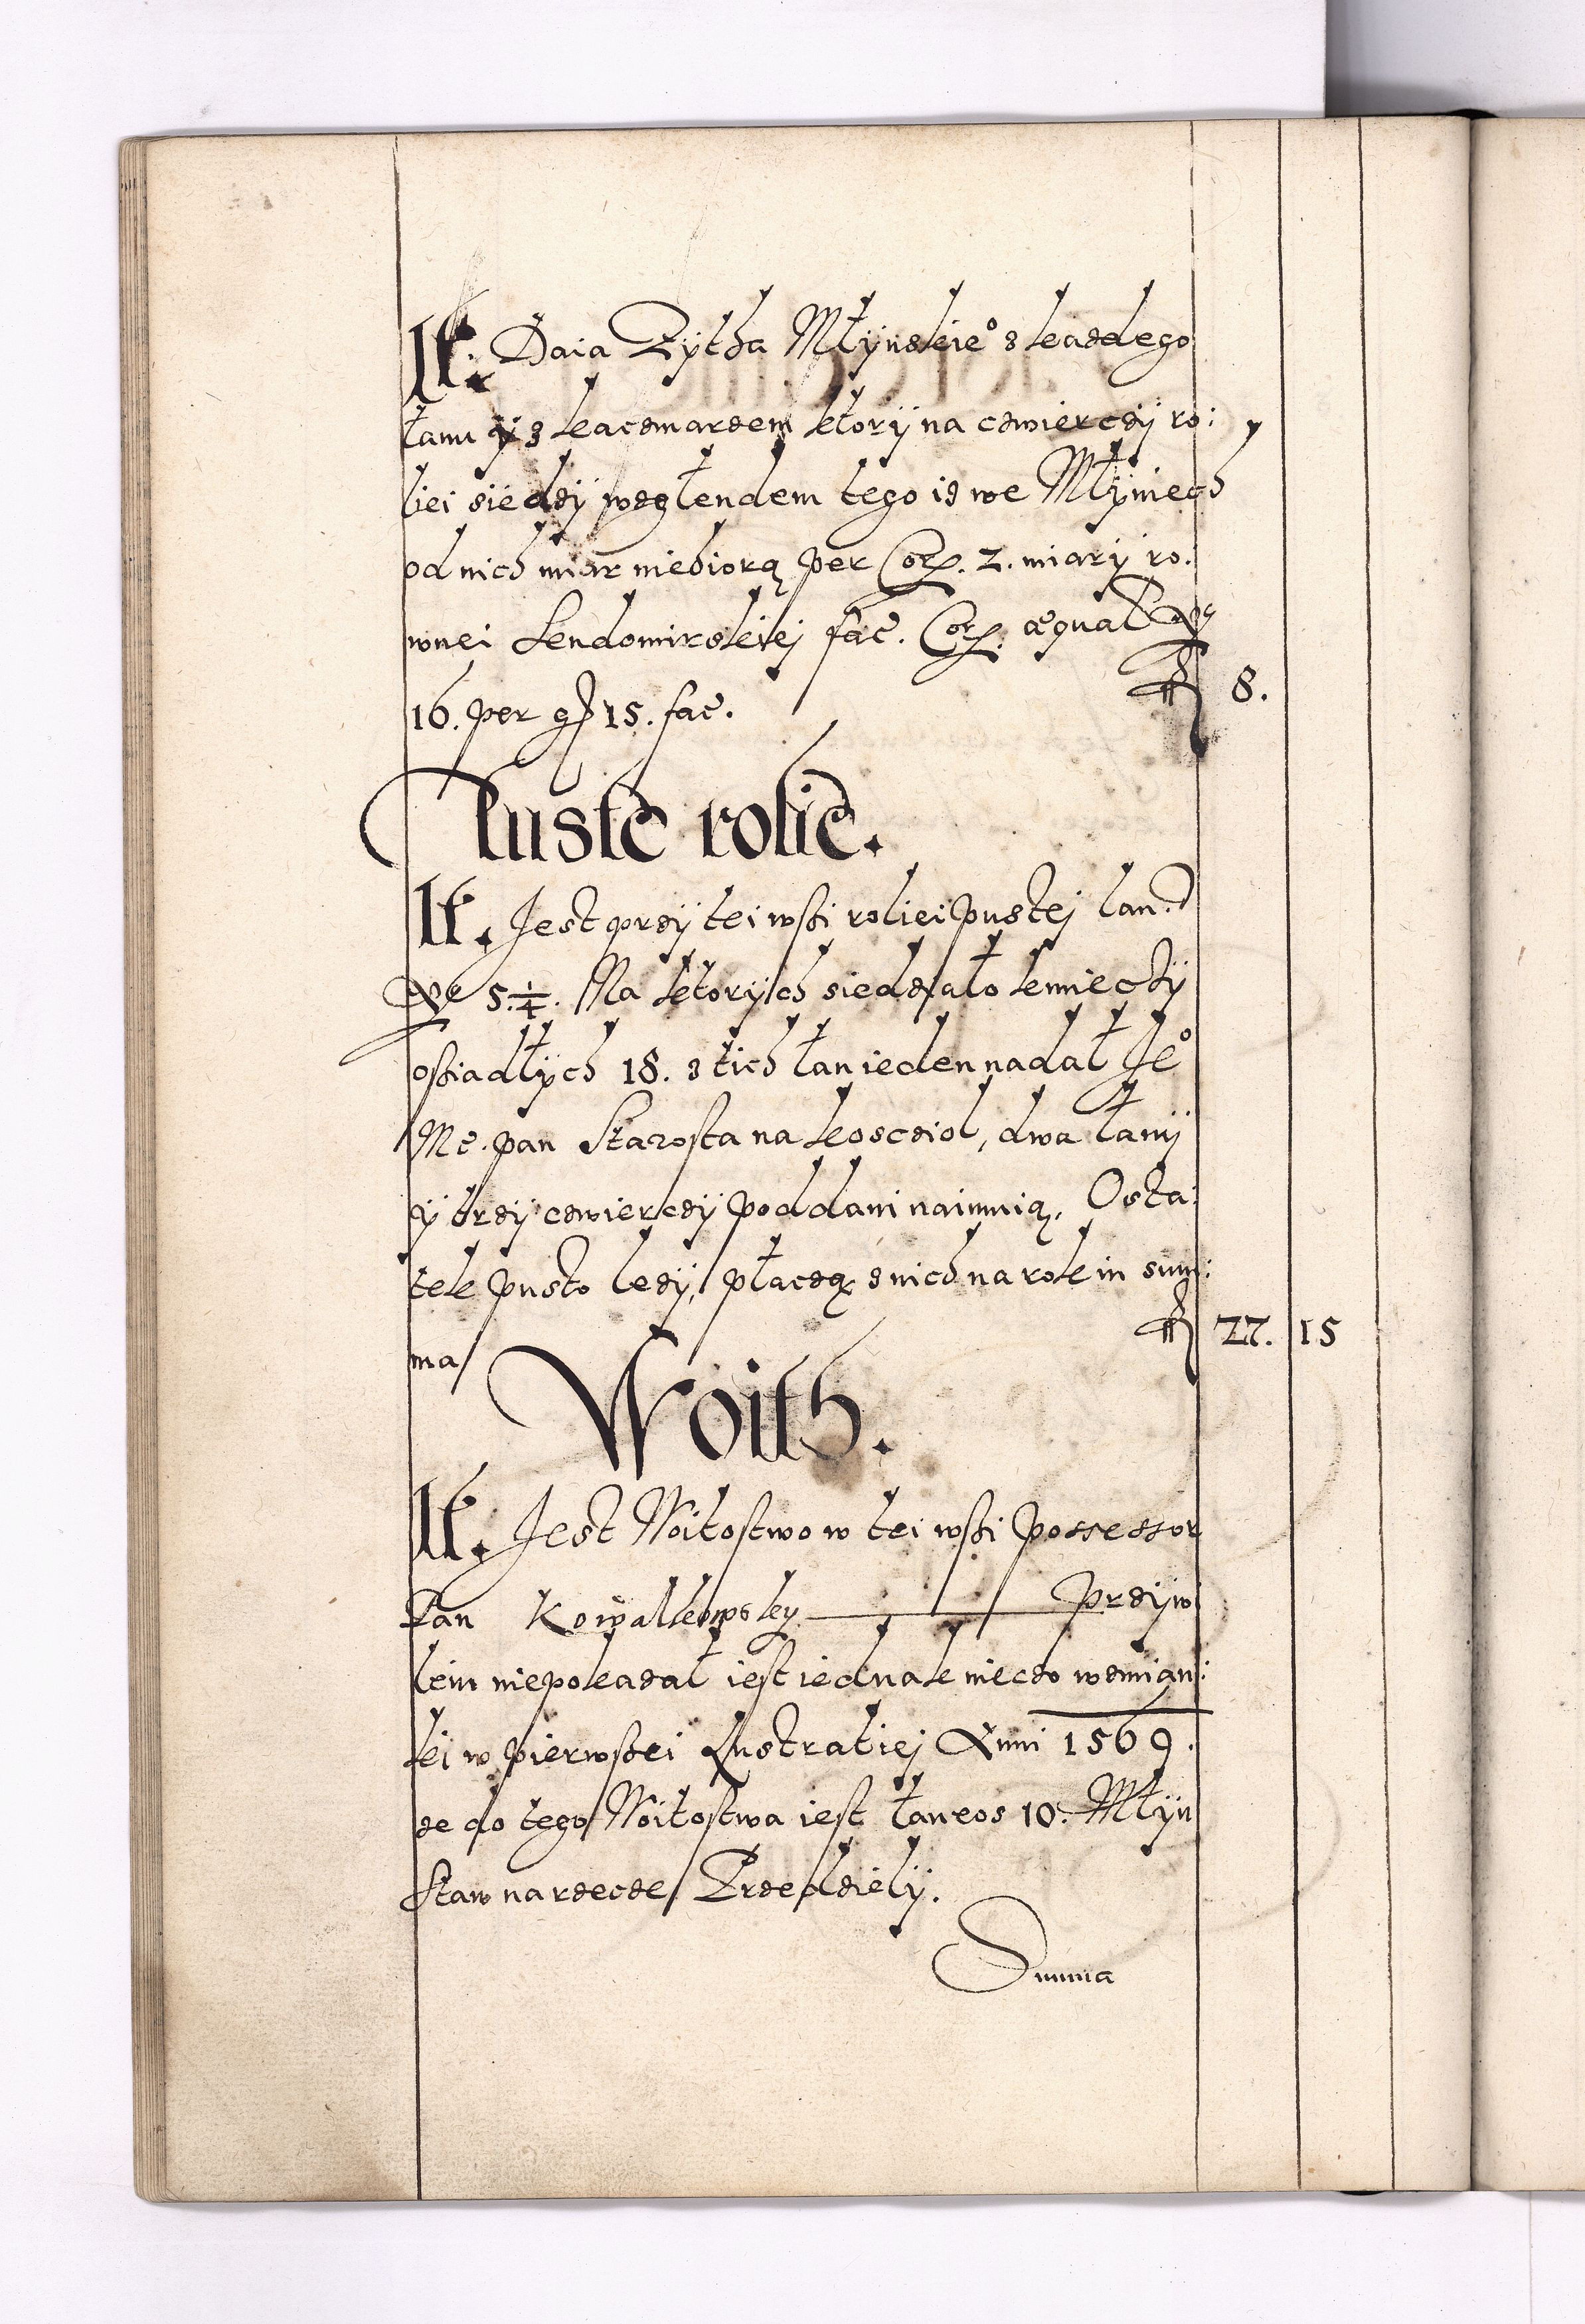 It. Daia Zytha Młÿnskie° z kazdego
łanu ÿ z kaczmarzem ktorÿ na czwierczÿ ro:
liei siedzÿ wzglendem tego iz we Młÿniech
od nich miar niebiorą per Cor. 2. miarÿ ro:
wnei Sendomirskiej fac. Cor. æqual N°
16. per gr 15. fac. fl 8.
Puste rolie.
It. Jest przÿ tei wsßi roliei pustej lan.
N° 5 1/4. Na ktorÿch siedziało kmieczÿ
osßiadłÿch 18. z tich łan ieden nadał Je°
Mc. pan Starosta na kosczioł, dwa łanÿ
ÿ trzÿ czwierczÿ poddani naimuią, Osta:
tek pusto lezÿ, płaczą z nich na rok in sum:
ma fl 27. 15
Woith.
It. Jest Woitostwo w tei wsßi possessor
Pan Kowalkowsky Przÿwi
leiu niepokazał iest iednak nieczo wzmian:
kei w pierwsßei Lustratiej Anni 1569.
ze do tego Woitostwa iest łaneos 10. Młÿn
Staw na rzecze Przedzielÿ.
Summa